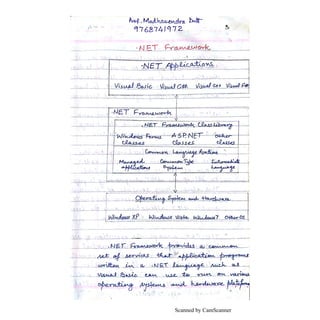 Prof. Mathavendra Dutt
9768741972
3
.NET Framework
.NET Applications
Visual Basic Visual C## Visual C++ Visual F##
.NET Framework
.NET Framework Class Library
Windows Forms ASP.NET other
classes classes classes
Common Language Runtime
Managed Common Type Intermediate
applications System Language
Operating System and Hardware
Windows XP Windows Vista Windows 7 Other OS
.NET Framework provides a common
set of services that application programs
written in a .NET language such as
Visual Basic can use to run on various
operating systems and hardware platforms
Scanned by CamScanner